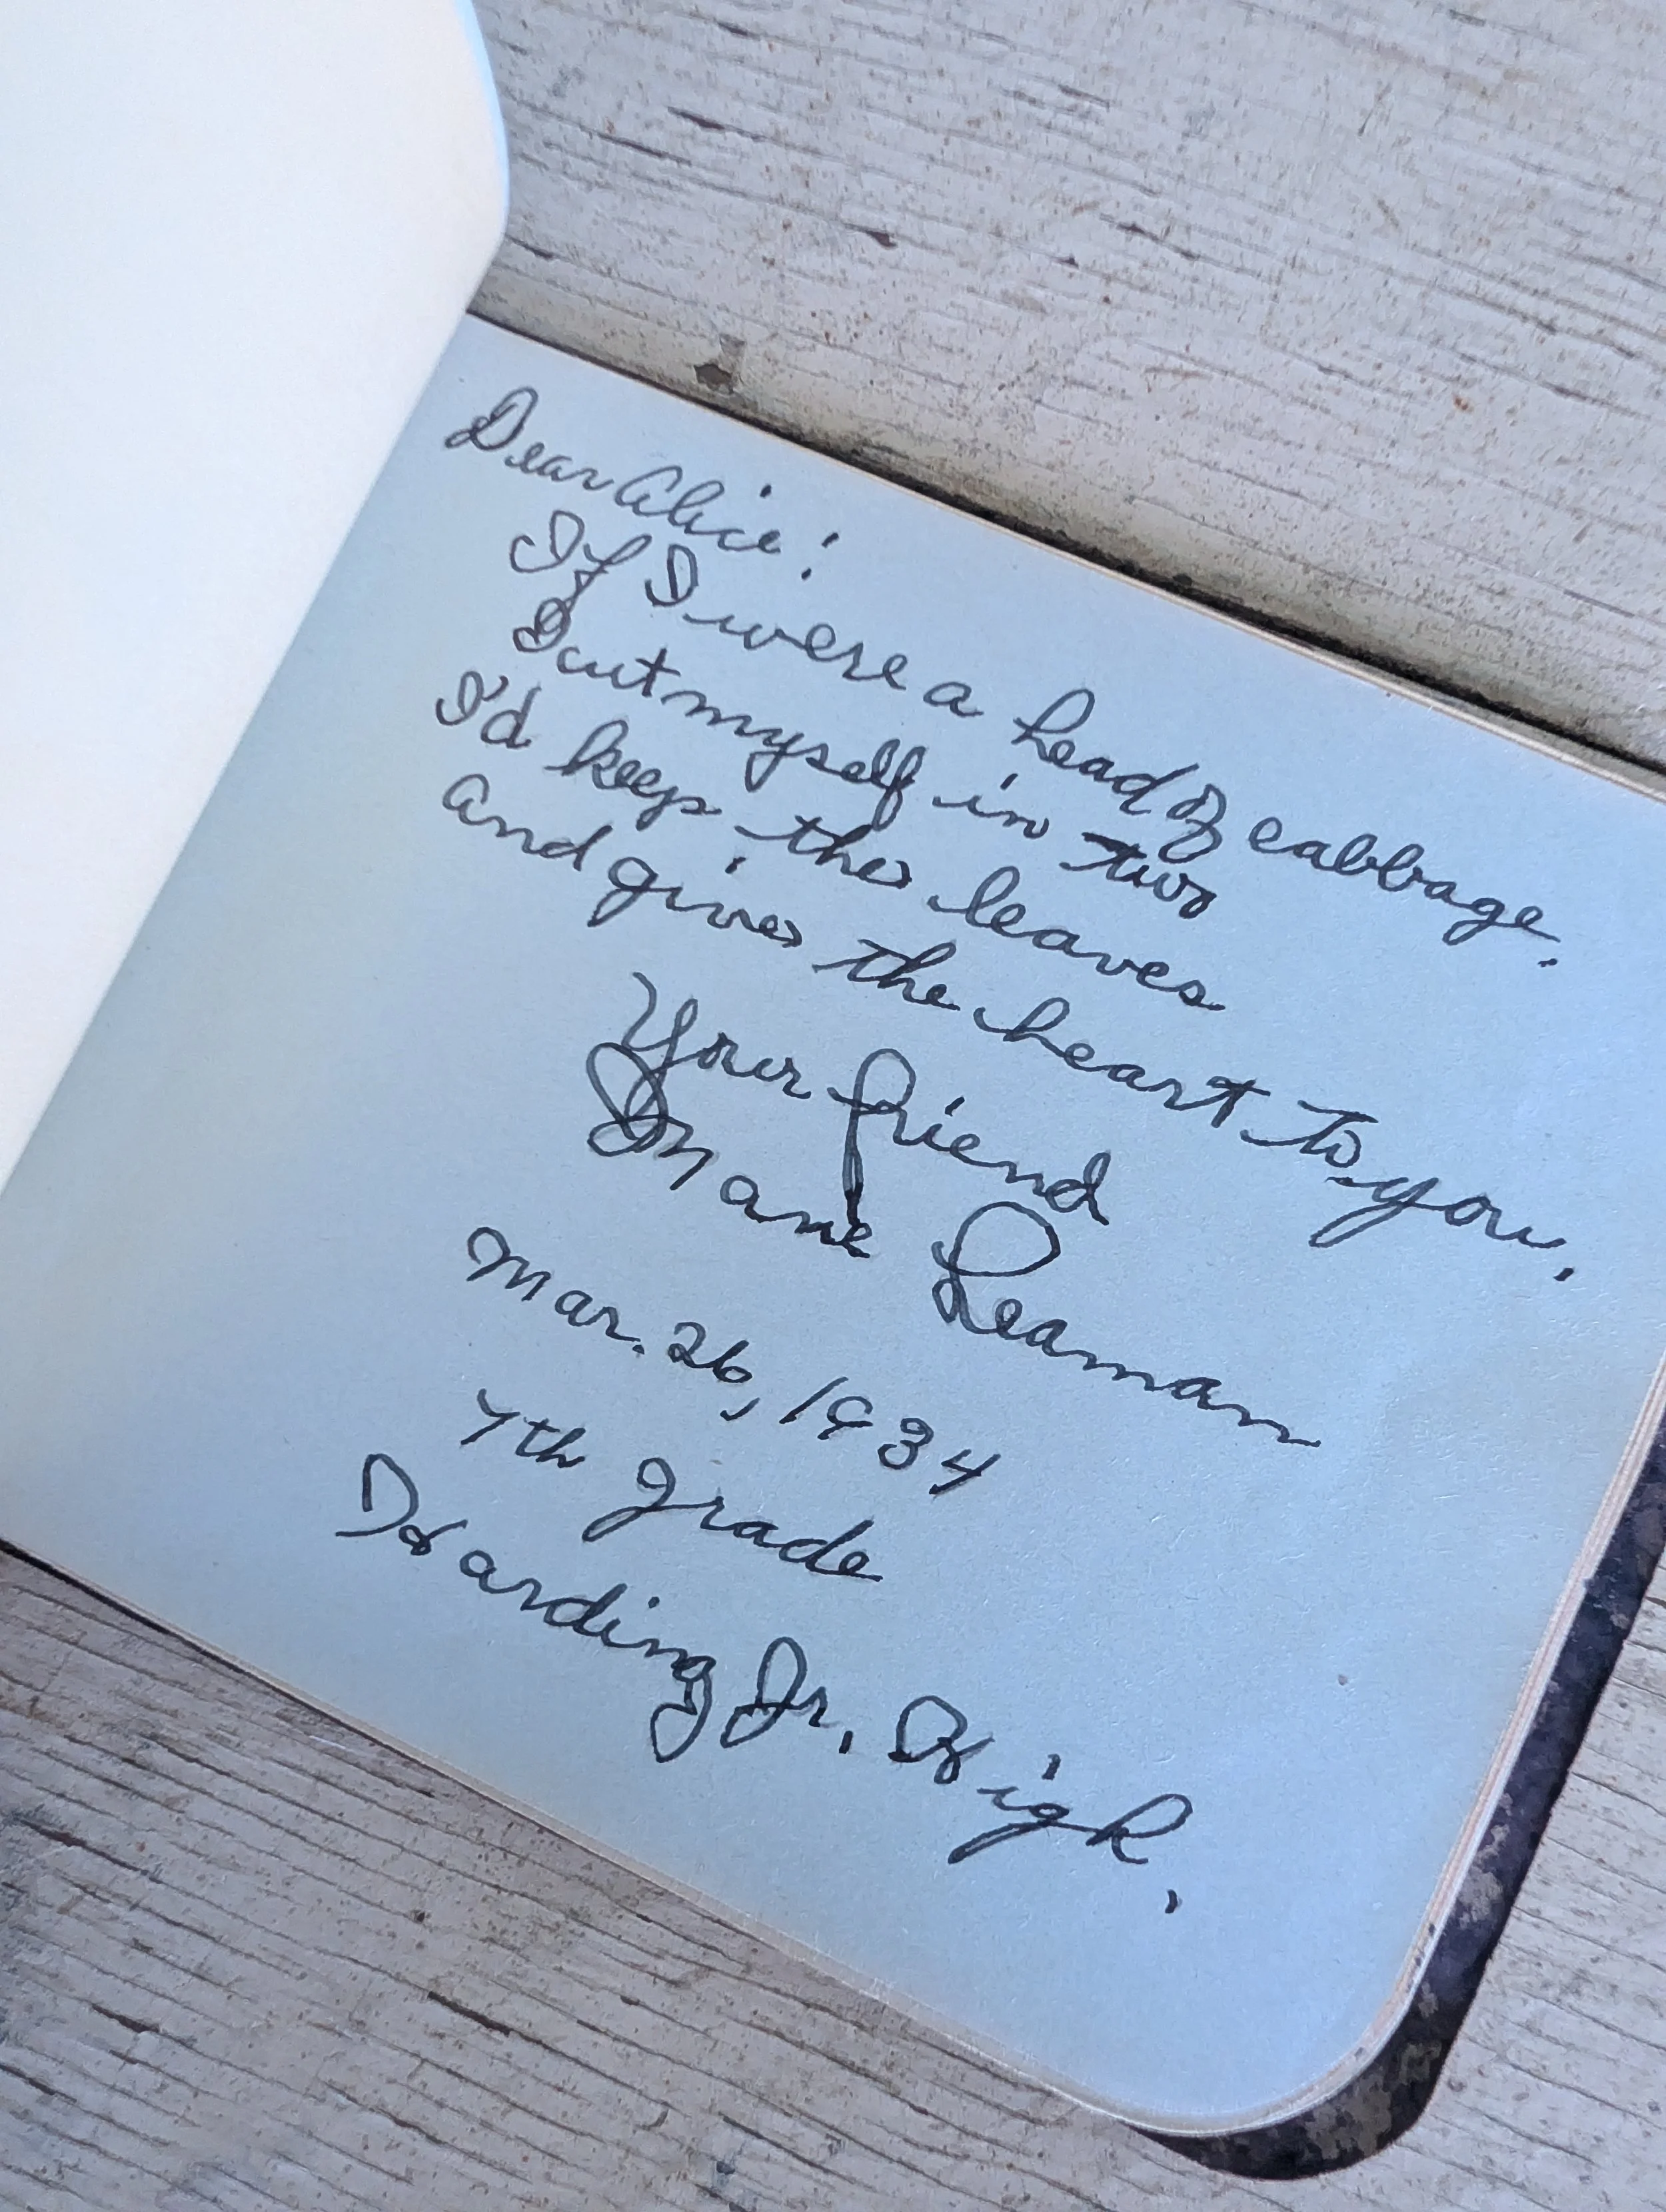 Dear Alice:
If I were a head of cabbage.
I cut myself in two
I'd keep the leaves
And give the heart to you.
Your friend
Mane Leaman
Mar. 26, 1934
7th grade
Harding Jr. High.